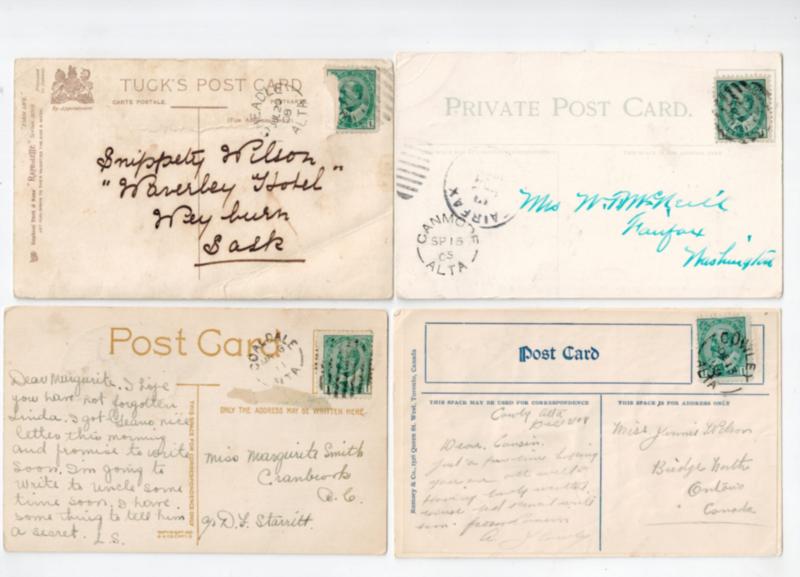 TUCK'S POST CARD
CARTE POSTALE.
POSTKARTE
By Appointment
ALTA
Snippety Wilson
"Waverley Hotel"
Weyburn
Sask
PRIVATE POST CARD.
FAIRFAX
CANMORE
SP 16
05
ALTA
Mrs W.
Fairfax
Washington
Post Card
COALDALE
ALTA
ONLY THE ADDRESS MAY BE WRITTEN HERE.
THIS SPACE FOR CORRESPONDENCE
Dear Margurite. I hope
you have not forgotten
Linda. I got nice
letter this morning
and promise to write
soon. I'm going to
write to Uncle some
time soon, I have
some thing to tell him
a secret. L.S.
Miss Margurite Smith
Cranbrook
B.C.
c/o D. L. Starritt.
Post Card
COWLEY
THIS SPACE MAY BE USED FOR CORRESPONDENCE
THIS SPACE IS FOR ADDRESS ONLY
Rumsey & Co., 1326 Queen St. West, Toronto, Canada
Cowly Alta
Dear Cousin.
Just a
you are all well
Miss Jennie Wilson
Bridge North
Ontario
Canada